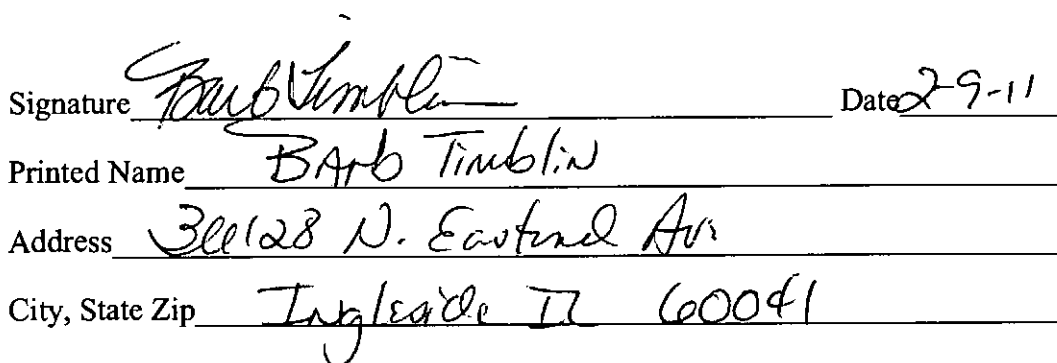 Signature Barb Timblin Date 2-9-11
Printed Name BArb Timblin
Address 36128 N. Eastend Av.
City, State Zip Ingleside Il 60041